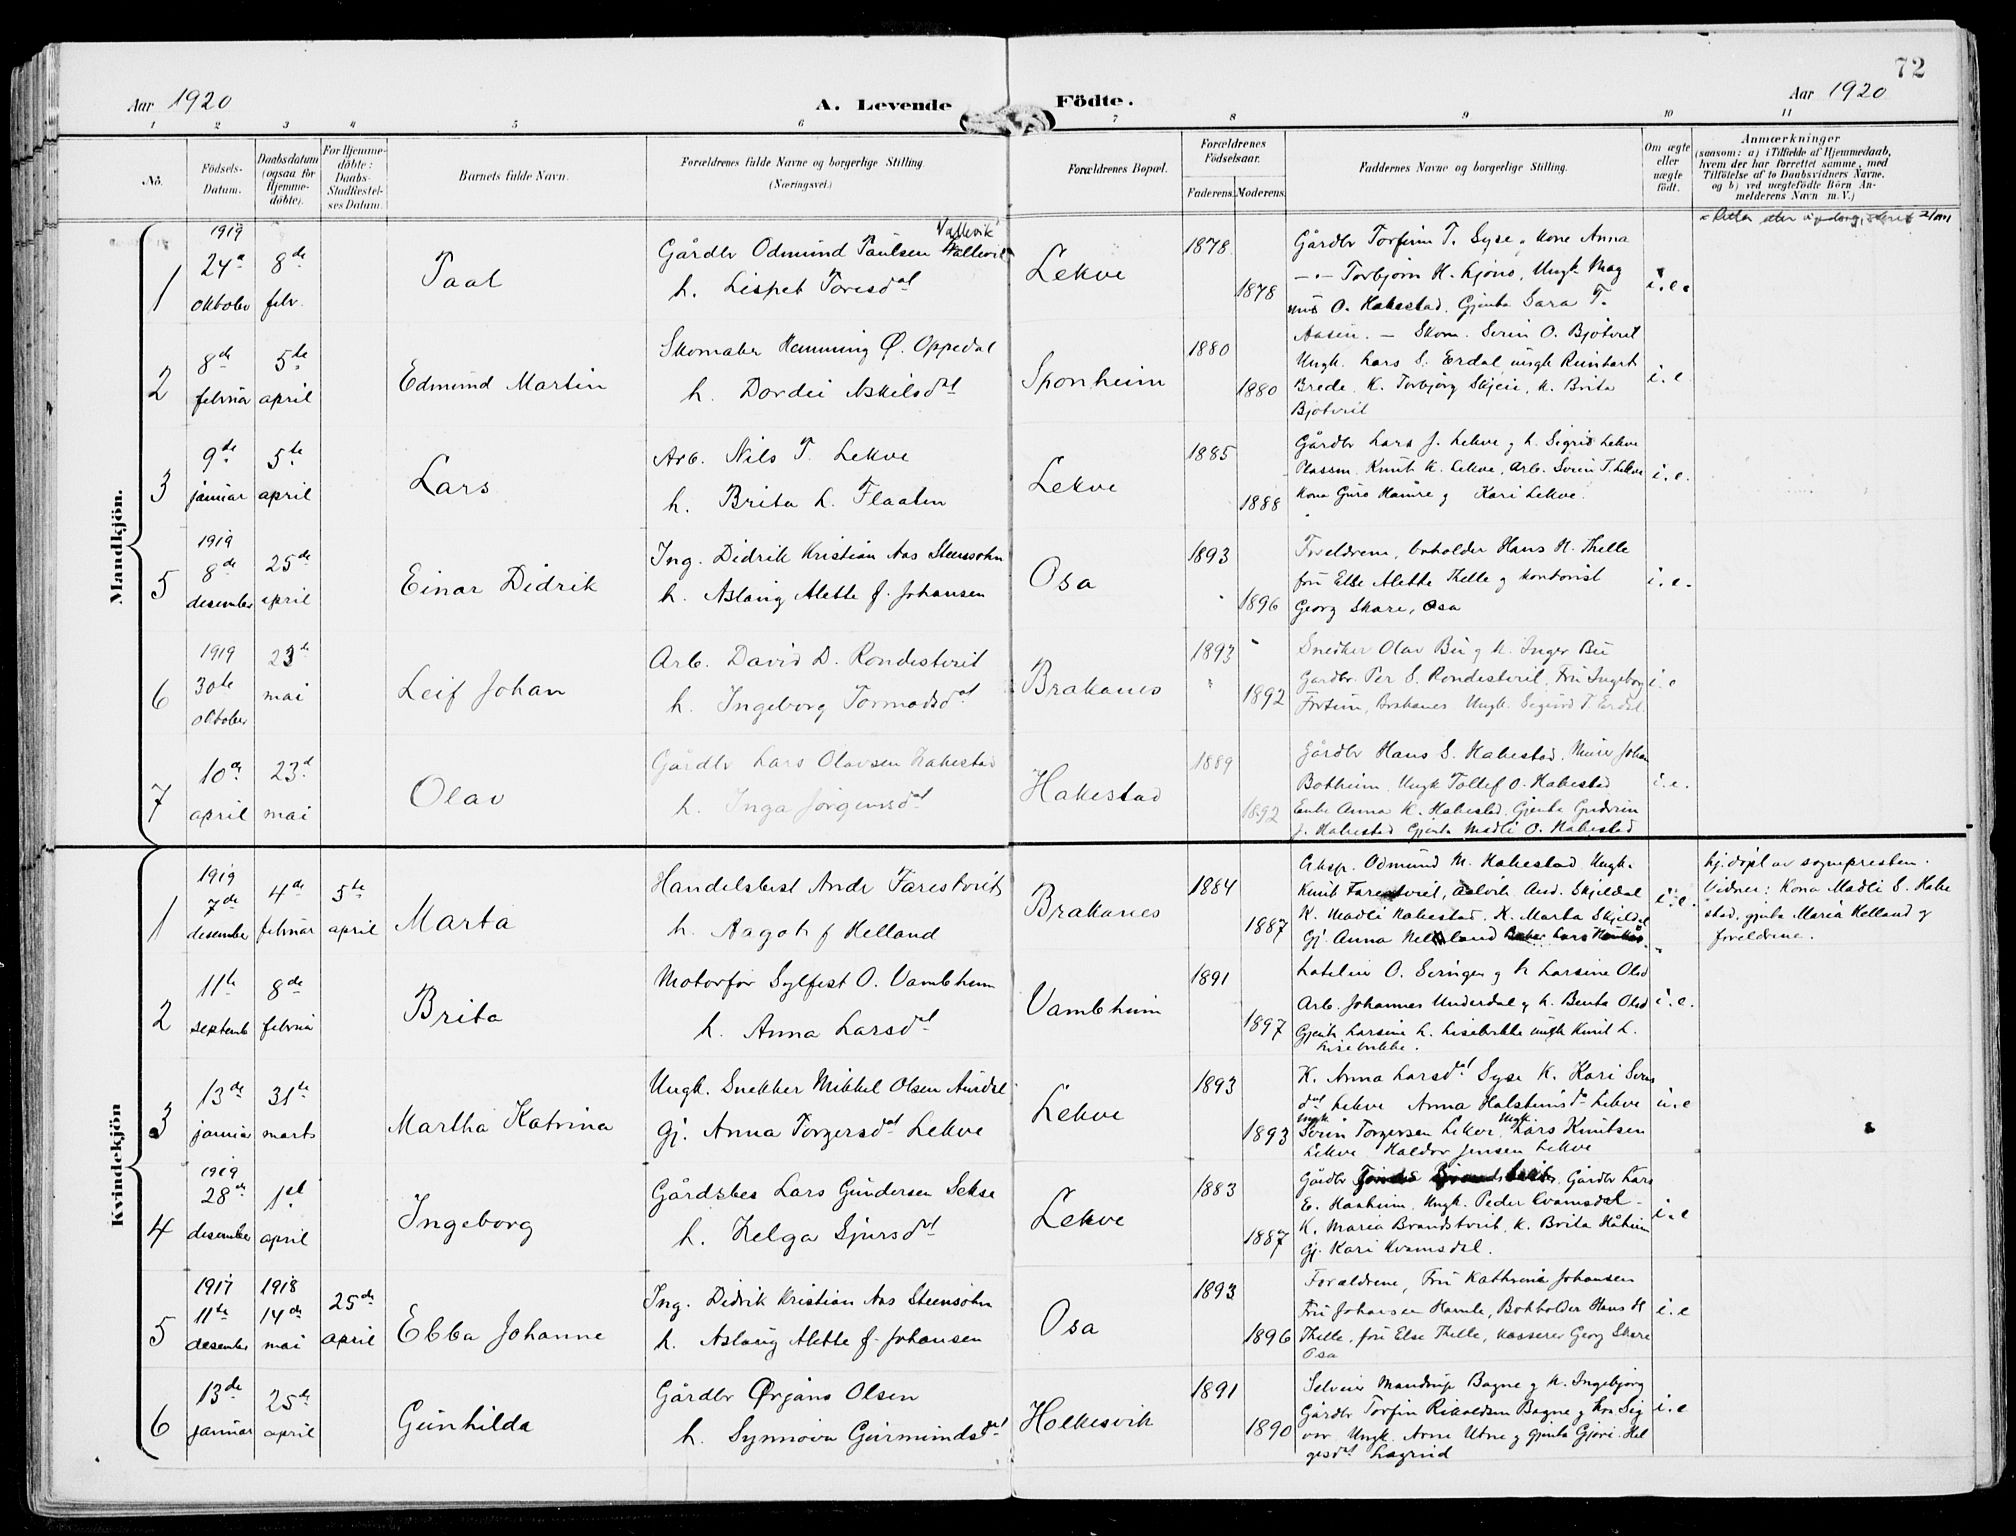 72
Aar 1920
A. Levende Födte.
Aar 1920
1 2 3 4 5 6 7 8 9 10 11
No.
Födsels-Datum.
Daabsdatum (ogsaa for Hjemme-döbte).
For Hjemme-döbte: Daabs-Stadfæstel-ses Datum.
Barnets fulde Navn.
Forældrenes fulde Navne og borgerlige Stilling.
(Næringsvei.)
Forældrenes Bopæl.
Forældrenes Födselsaar.
Faderens. Moderens.
Faddernes Navne og borgerlige Stilling.
Om ægte eller uægte födt.
Anmærkninger
(saasom: a) i Tilfælde af Hjemmedaab,
hvem der har forrettet samme, med
Tilföielse af to Daabsvidners Navne.
og b) ved uægtefödte Börn An-
melderens Navn m. V.)
Mandkjön.
1
1919
24de oktober
8de febr.
Paal
Gårdbr Odmund Paulsen Vallevik
h. Lisbet Toresdat
Lekve
1878
1878
Gårdbr Torfinn T. Syse, kone Anna
— Torbjørn H. Ljono, Ungk. Mag
nus O. Hakestad, Gjenta Sara T.
Aasen.
i.e.
2
8de februar
5te april
Edmund Martin
Skomaker Hemming Ø. Oppedal
h. Dordei Askilsdt
Sponheim
1880
1880
— Skom. Sverin O. Bjotveit
Ungk. Lars S. Erdal, ungk Reinhart
Brede. K. Torbjørg Skjeie, K. Brita
Bjotveit
i.e.
3
9de januar
5te april
Lars
Arb. Nils T. Lekve
h. Brita L. Flaaten
Lekve
1885
1888
Gårdbr Lars J. Lekve g h. Sigrid Lekve
Plassm. Knut K. Lekve, Arb. Sverin T. Lekve
Kona Guro Hamre g Kari Lekve.
i.e.
5
1919
8de desember
25de april
Einar Didrik
Ing. Didrik Kristian Aas Steensohn
h. Aslaug Alette f. Johansen
Osa
1893
1896
Foreldrene, bokholder Hans H. Thelle
fru Else Alette Thelle g kontorist
Georg Skare, Osa
i.e.
6
1919
30te oktober
23de mai
Leif Johan
Arb. David D. Rondestveit
h. Ingeborg Tormodsdat
Brakanes
1893
1892
Snedker Olav Bu g h. Inger Bu
Gardbr. Per S. Rondestveit, Fru Ingeborg
Fortun, Brakanes Ungk. Sigurd T. Erdal.
i.e
7
10de april
23d mai
Olav
Gårdbr Lars Olavsen Hakestad
h. Inga Jørgensdat
Hakestad
1889
1892
Gårdbr Hans S. Hakestad, Murer Johan
Botheim, Ungk Tollef O. Hakestad
Enke Anna K. Hakestad, Gjenta Gudrun
J. Hakestad Gjenta Madli O. Hakestad
i.e.
Kvindekjön
1
1919
7de desember
4de februar
5te april
Marta
Handelsbest Andr Farestveit
h. Aagot f Helland
Brakanes
1884
1887
Eksp. Odmund M. Hakestad Ungk.
Knut Farestveit, Aalvik. And. Skjeldal
K. Madli Hakestad. K. Marta Skjeldal
Gj. Anna Helland
i.e.
hj.døpt av sognepresten.
Vidner: Kona Madli S. Hake
stad, gjenta Maria Helland g
foreldrene.
2
11te septemb
8de februar
Brita
Motorfør Sylfest O. Vambheim
h. Anna Larsdt
Vambheim
1891
1897
g h Larsine Olsd
Arb. Johannes Underdal g h. Benta Olsd
Gjenta Larsine L. Lisebrekke ungk Knut L.
Lisebrekke.
i.e.
3
13de januar
31te marts
Martha Katrina
Ungk. Snekker Mikkel Olsen Aurdal
Gj. Anna Torgersdat Lekve
Lekve
1893
1893
K. Anna Larsdat Syse K. Kari Svens
dat Lekve Anna Halsteinsd Lekve
Ungk Sverin Torgersen Lekve Ungk Lars Knutsen
Lekve Haldor Jensen Lekve
u.e
4
1919
28de desember
1st april
Ingeborg
Gårdbes Lars Gundersen Sekse
h. Helga Sjursdt
Lekve
1883
1887
Gårdbr Gårdbr Lars
E. Haaheim, Ungk. Peder Kvamsdal.
K. Maria Brandstveit, K. Brita Håheim
Gj. Kari Kvamsdal.
i.e
5
1917
11te desember
1918
14de mai
25de april
Ebba Johanne
Ing. Didrik Kristian Aas Steensohn
h. Aslaug Alette f. Johansen
Osa
1893
1896
Forældrene, Fru Kathrine Johansen
Fru Johansen Hamle, Bokholder Hans H
Thelle, fru Else Thelle, kasserer Georg Skare
Osa
i.e
6
13de januar
25de april
Gunhilda
Gårdbr Ørjans Olsen
h. Synnøva Geirmundsdat
Holkesvik
1891
1890
Selveier Mandrup Bagne g h. Ingebjørg
Gårdbr Torfin Rikoldsen Bagne g kna Sig
var Ungk. Arne Utne g gjenta Gjøri Hel
gesdat Lægreid
i.e